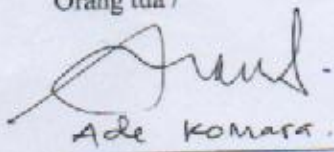 Orang tua /
Ade Komara.